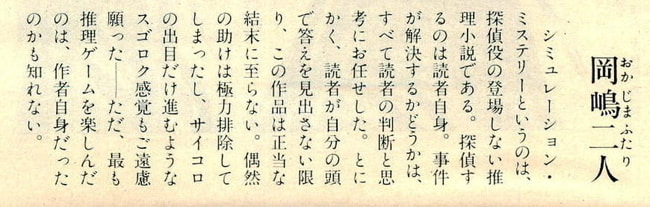 岡嶋二人
おかじまふたり
シミュレーション・
ミステリーというのは、
探偵役の登場しない推
理小説である。探偵す
るのは読者自身。事件
が解決するかどうかは、
すべて読者の判断と思
考にお任せした。とに
かく、読者が自分の頭
で答えを見出さない限
り、この作品は正当な
結末に至らない。偶然
の助けは極力排除して
しまったし、サイコロ
の出目だけ進むような
スゴロク感覚もご遠慮
願った――ただ、最も
推理ゲームを楽しんだ
のは、作者自身だった
のかも知れない。